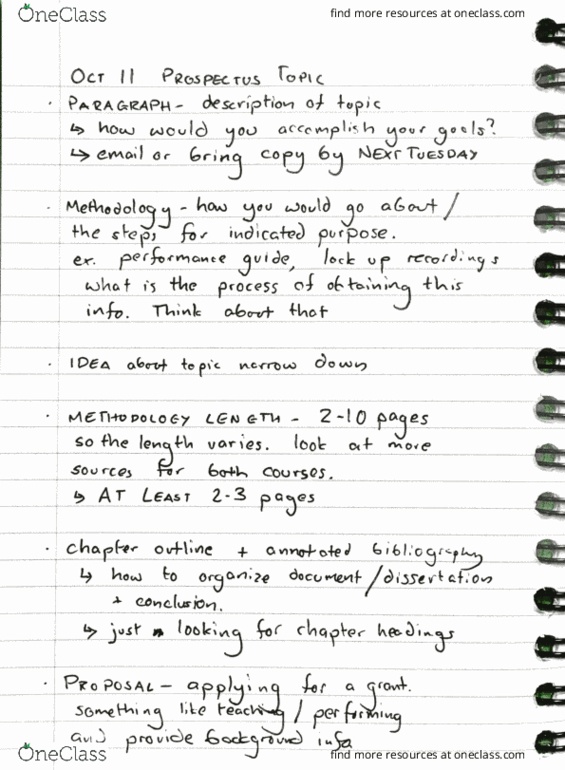 OneClass
find more resources at oneclass.com
OCT 11 PROSPECTUS TOPIC
· PARAGRAPH - description of topic
↳ how would you accomplish your goals?
↳ email or bring copy by NEXT TUESDAY
· Methodology - how you would go about /
the steps for indicated purpose.
ex. performance guide, look up recordings
what is the process of obtaining this
info. Think about that
· IDEA about topic narrow down
· METHODOLOGY LENGTH - 2-10 pages
so the length varies. look at more
sources for both courses.
↳ AT LEAST 2-3 pages
· chapter outline + annotated bibliography
↳ how to organize document / dissertation
+ conclusion.
↳ just looking for chapter headings
· PROPOSAL - applying for a grant.
something like teaching / performing
and provide background info
OneClass
find more resources at oneclass.com